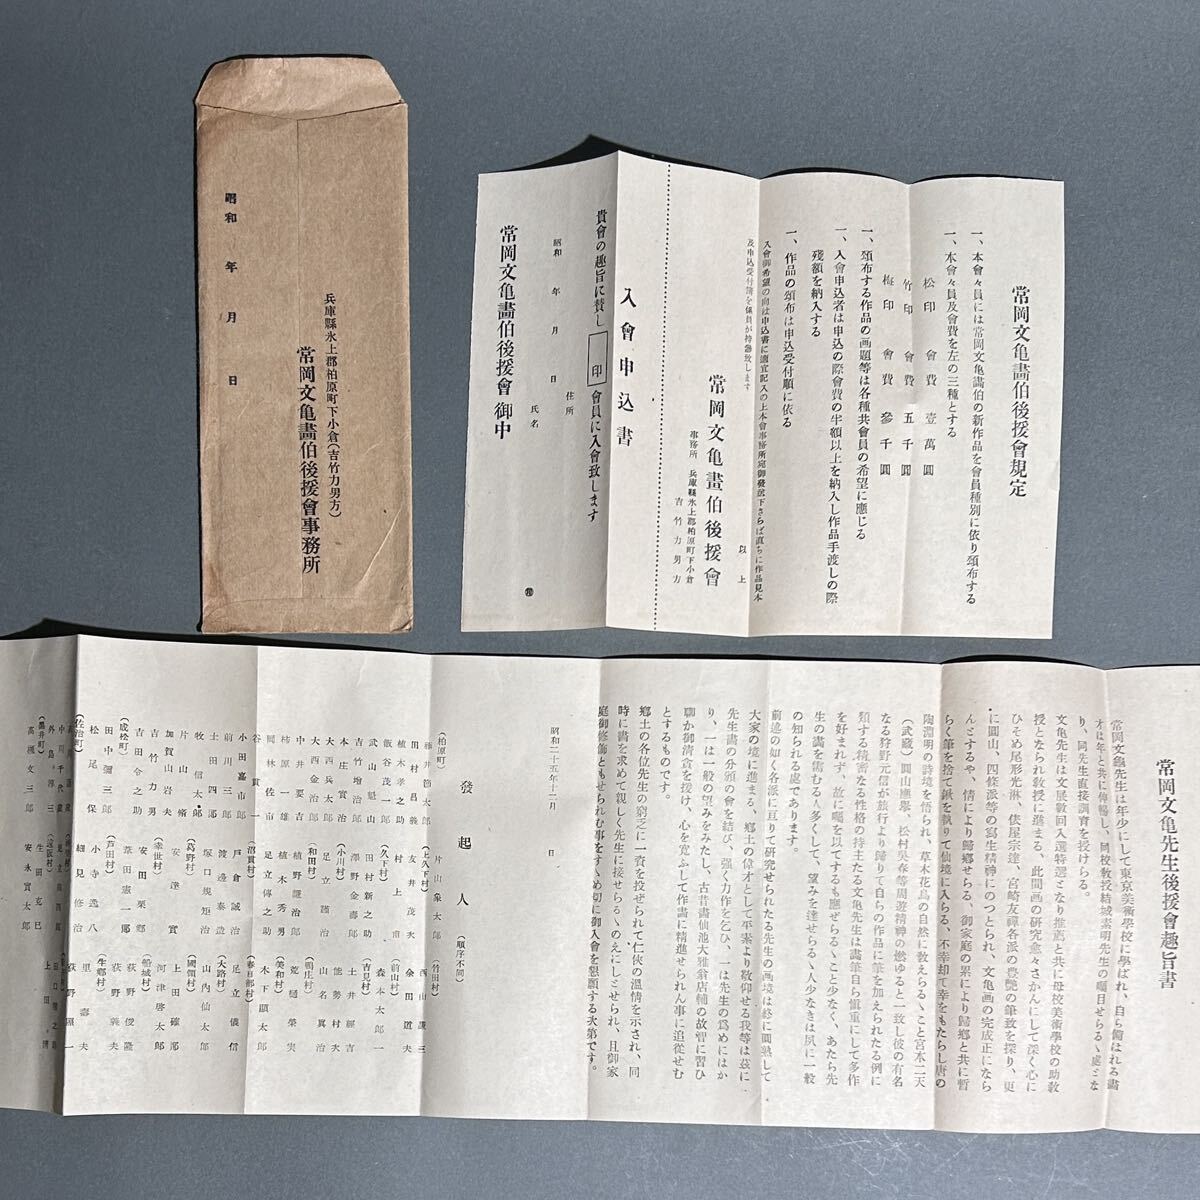 昭和　年　月　日
兵庫縣氷上郡柏原町下小倉(吉竹力男方)
常岡文亀畵伯後援會事務所
常岡文亀畵伯後援會規定
一、本會々員には常岡文亀畵伯の新作品を會員種別に依り頒布する
一、本會々員及會費を左の三種とする
松印　會費　壹萬圓
竹印　會費　五千圓
梅印　會費　參千圓
一、頒布する作品の画題等は各種共會員の希望に應じる
一、入會申込者は申込の際會費の半額以上を納入し作品手渡しの際
殘額を納入する
一、作品の頒布は申込受付順に依る
以上
入會御希望の向は申込書に適宜記入の上本會事務所宛御發送下さらば直ちに作品見本
及申込受付簿を係員が持參致します
常岡文亀畵伯後援會
事務所　兵庫縣氷上郡柏原町下小倉
吉竹力男方
入會申込書
貴會の趣旨に賛し 印 會員に入會致します
昭和　年　月　日
住所
氏名
常岡文亀畵伯後援會 御中
常岡文亀先生後援會趣旨書
常岡文龜先生は年少にして東京美術學校に學ばれ、自ら備はれる畵
才は年と共に伸暢し、同校教授結城素明先生の囑目せらるゝ處とな
り、同先生直接訓育を授けらる。
文亀先生は文展數回入選特選となり推薦と共に母校美術學校の助教
授となられ教授に進まる、此間画の研究愈々さかんにして深く心に
ひそめ尾形光淋、俵屋宗達、宮崎友禪各派の豊艶の筆致を探り、更
に圓山、四條派等の寫生精神にのつとられ、文亀画の完成正になら
んとするや、情により歸郷せらる、御家庭の累により歸郷と共に暫
らく筆を捨て鍬を執りて仙境に入らる、不幸却て幸をもたらし唐の
陶淵明の詩境を悟られ、草木花鳥の自然に教えらるゝこと宮本二天
(武藏)圓山應擧、松村吳春等周遊精神の燃ゆると一致し彼の有名
なる狩野元信が旅行より歸りて自らの作品に筆を加えられたる例に
類する精密なる性格の持主たる文亀先生は畵筆自ら愼重にして多作
を好まれず、故に囑を以てするも應ぜらるゝこと少なく、あたら先
生の畵を需むる人多くして、望みを達せらるゝ人少なきは夙に一般
の知られる處であります。
前述の如く各派に亘りて研究せられたる先生の画境は終に圓熟して
大家の境に進まる、郷土の偉才として平素より敬仰せる我等は茲に
先生畵の分頒の會を結び、强く力作を乞ひ、一は先生の爲めにはか
り、一は一般の望みをみたし、古昔畵仙池大雅翁店輔の故智に習ひ
聊か御清貪を援け、心を寛ふして作畵に精進せられん事に追從せむ
とするものです。
郷土の各位先生の窮乏に一資を投せられて仁俠の溫情を示され、同
時に畵を求めて親しく先生に接せらるゝのえにしとせられ、且御家
庭御修飾ともせられむ事をすゝめ切に御入會を懇願する次第です。
昭和二十五年十二月　日
發起人　(順序不同)
(柏原町)
藤井笛太郎
田村昌義
植木孝之助
飯谷茂一郎
武山魁山
吉竹增治郎
本庄實治
大西兵次郎
大西金治郎
中井要吉
柿原一雄
岡林佐市
谷貫一
小田嘉市郎
上山四郎
牧信太郎
片山脩
加賀山岩夫
吉竹力男
吉田令之助
(成松町)
田中彌三郎
松尾保
(佐治町)
(上久下村)
片山象太郎
友井茂次
村上甫
(久下村)
田村新之助
澤野金壽郎
(小川村)
足立齊治
(和田村)
植野諲治郎
植木秀男
足立傳之助
(沼貫村)
戸倉誠治
渡邊泰造
塚口規矩治
(葛野村)
安達實
安田栗郷
(幸世村)
葦田憲一郎
(芦田村)
小寺逸八
細見修治
(竹田村)
西山謙三
余田道夫
(前山村)
森本太郎一
(吉見村)
土井經吉
能勢村次
山名眞治
(鴨庄村)
荒樋榮実
(美和村)
木下順太郎
(春日部村)
足立儀信
(大路村)
山內仙太郎
(國領村)
上田確郎
河津啓太郎
(船城村)
荻野義夫
荻野俊隆
(生郷村)
里壽夫
荻野照一
中川千代藏
外島淳三
(黒井町)
高槻文三郎
(遠阪村)
生田克巳
安永實太郎